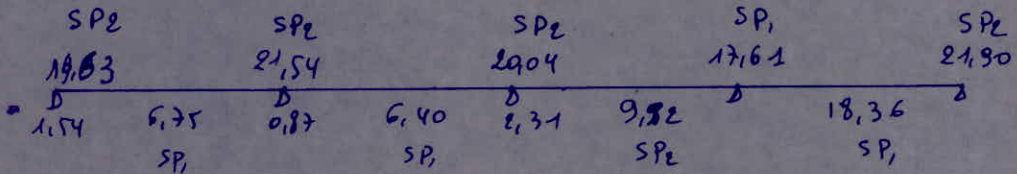 SP2 SP2 SP2 SP1 SP2
19,63 21,54 20,04 17,61 21,90
1,54 6,75 0,87 6,40 2,31 9,92 18,36
SP1 SP1 SP2 SP1